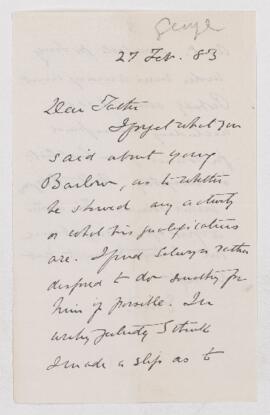 George
27 Feb. 83
Dear Father
I forget what you
said about young
Barlow, as to whether
he showed any activity
or what his qualifications
are. I find Selwyn rather
disposed to do something for
him if possible. In
writing I think
I made a slip as to